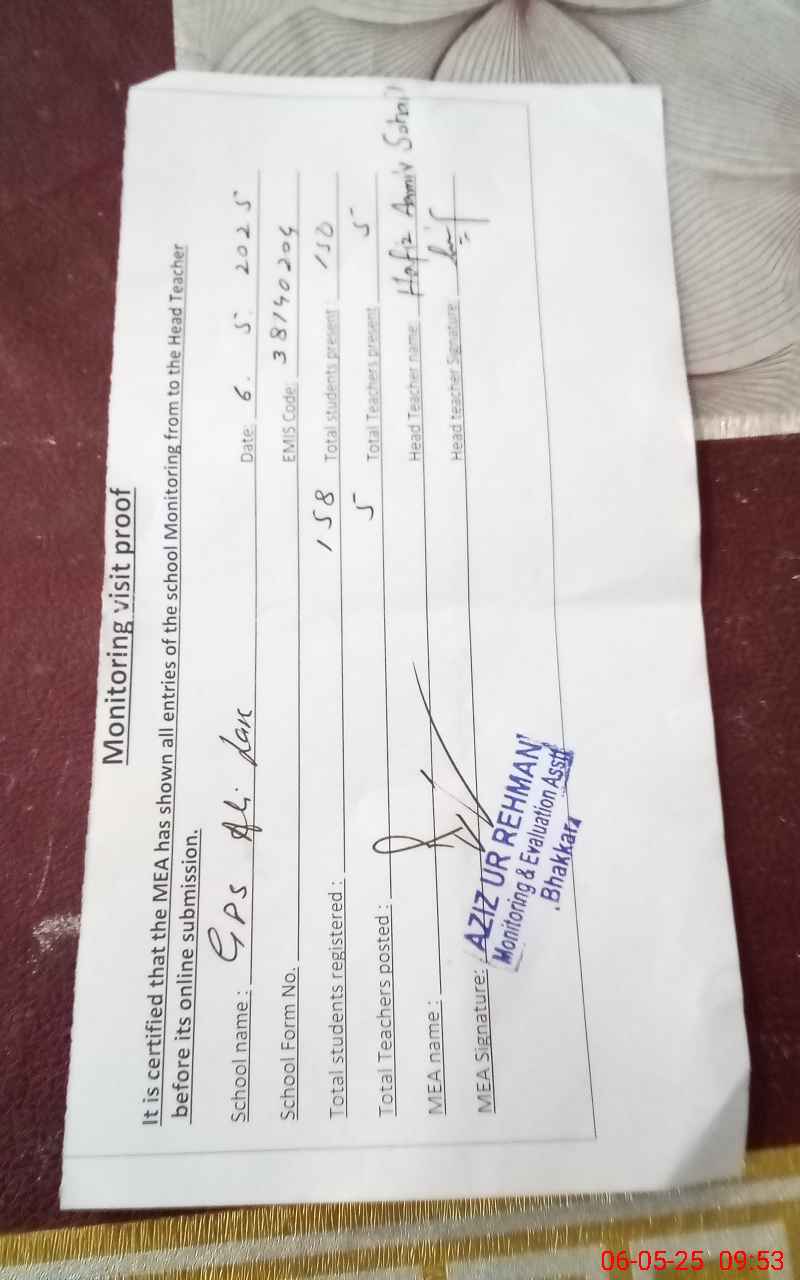 Monitoring visit proof
It is certified that the MEA has shown all entries of the school Monitoring from to the Head Teacher
before its online submission.
School name : GPS Ali Date: 6. 5. 2025
School Form No. EMIS Code: 38140204
Total students registered : 158 Total students present : 150
Total Teachers posted : 5 Total Teachers present : 5
MEA name : Head Teacher name: Hafiz Aamir Sohail
MEA Signature: Head teacher Signature:
AZIZ UR REHMAN
Monitoring & Evaluation Asstt
Bhakkar
06-05-25 09:53